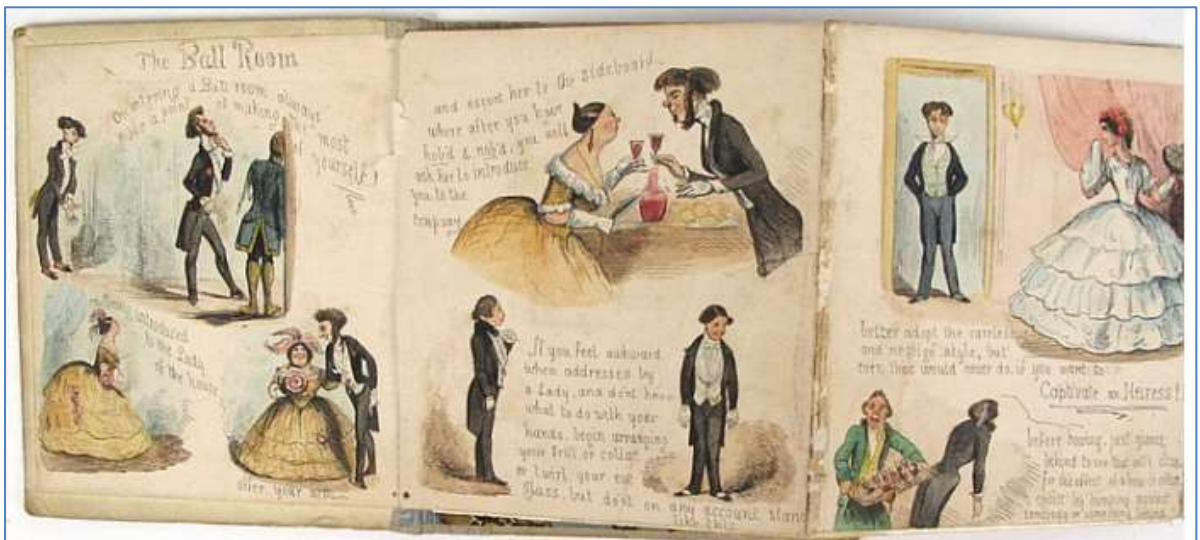 The Ball Room
On entering a Ball room, always
make a point of making the most
of yourself!
introduced
to the Lady
of the House
over your arm
and escort her to the sideboard
where after you have
hob'd & nob'd, you will
ask her to introduce
you to the
company
If you feel awkward
when addressed by
a Lady, and don't know
what to do with your
hands, begin arranging
your frill or collar
or twirl your eye
Glass, but don't on any account stand
like this
better adopt the careless
and negligé style, but
then that would never do, if you want to
Captivate an Heiress!
before bowing, just glance
behind to see that all's clear
for the effect of a bow is often
spoilt by bumping against
somebody or something behind